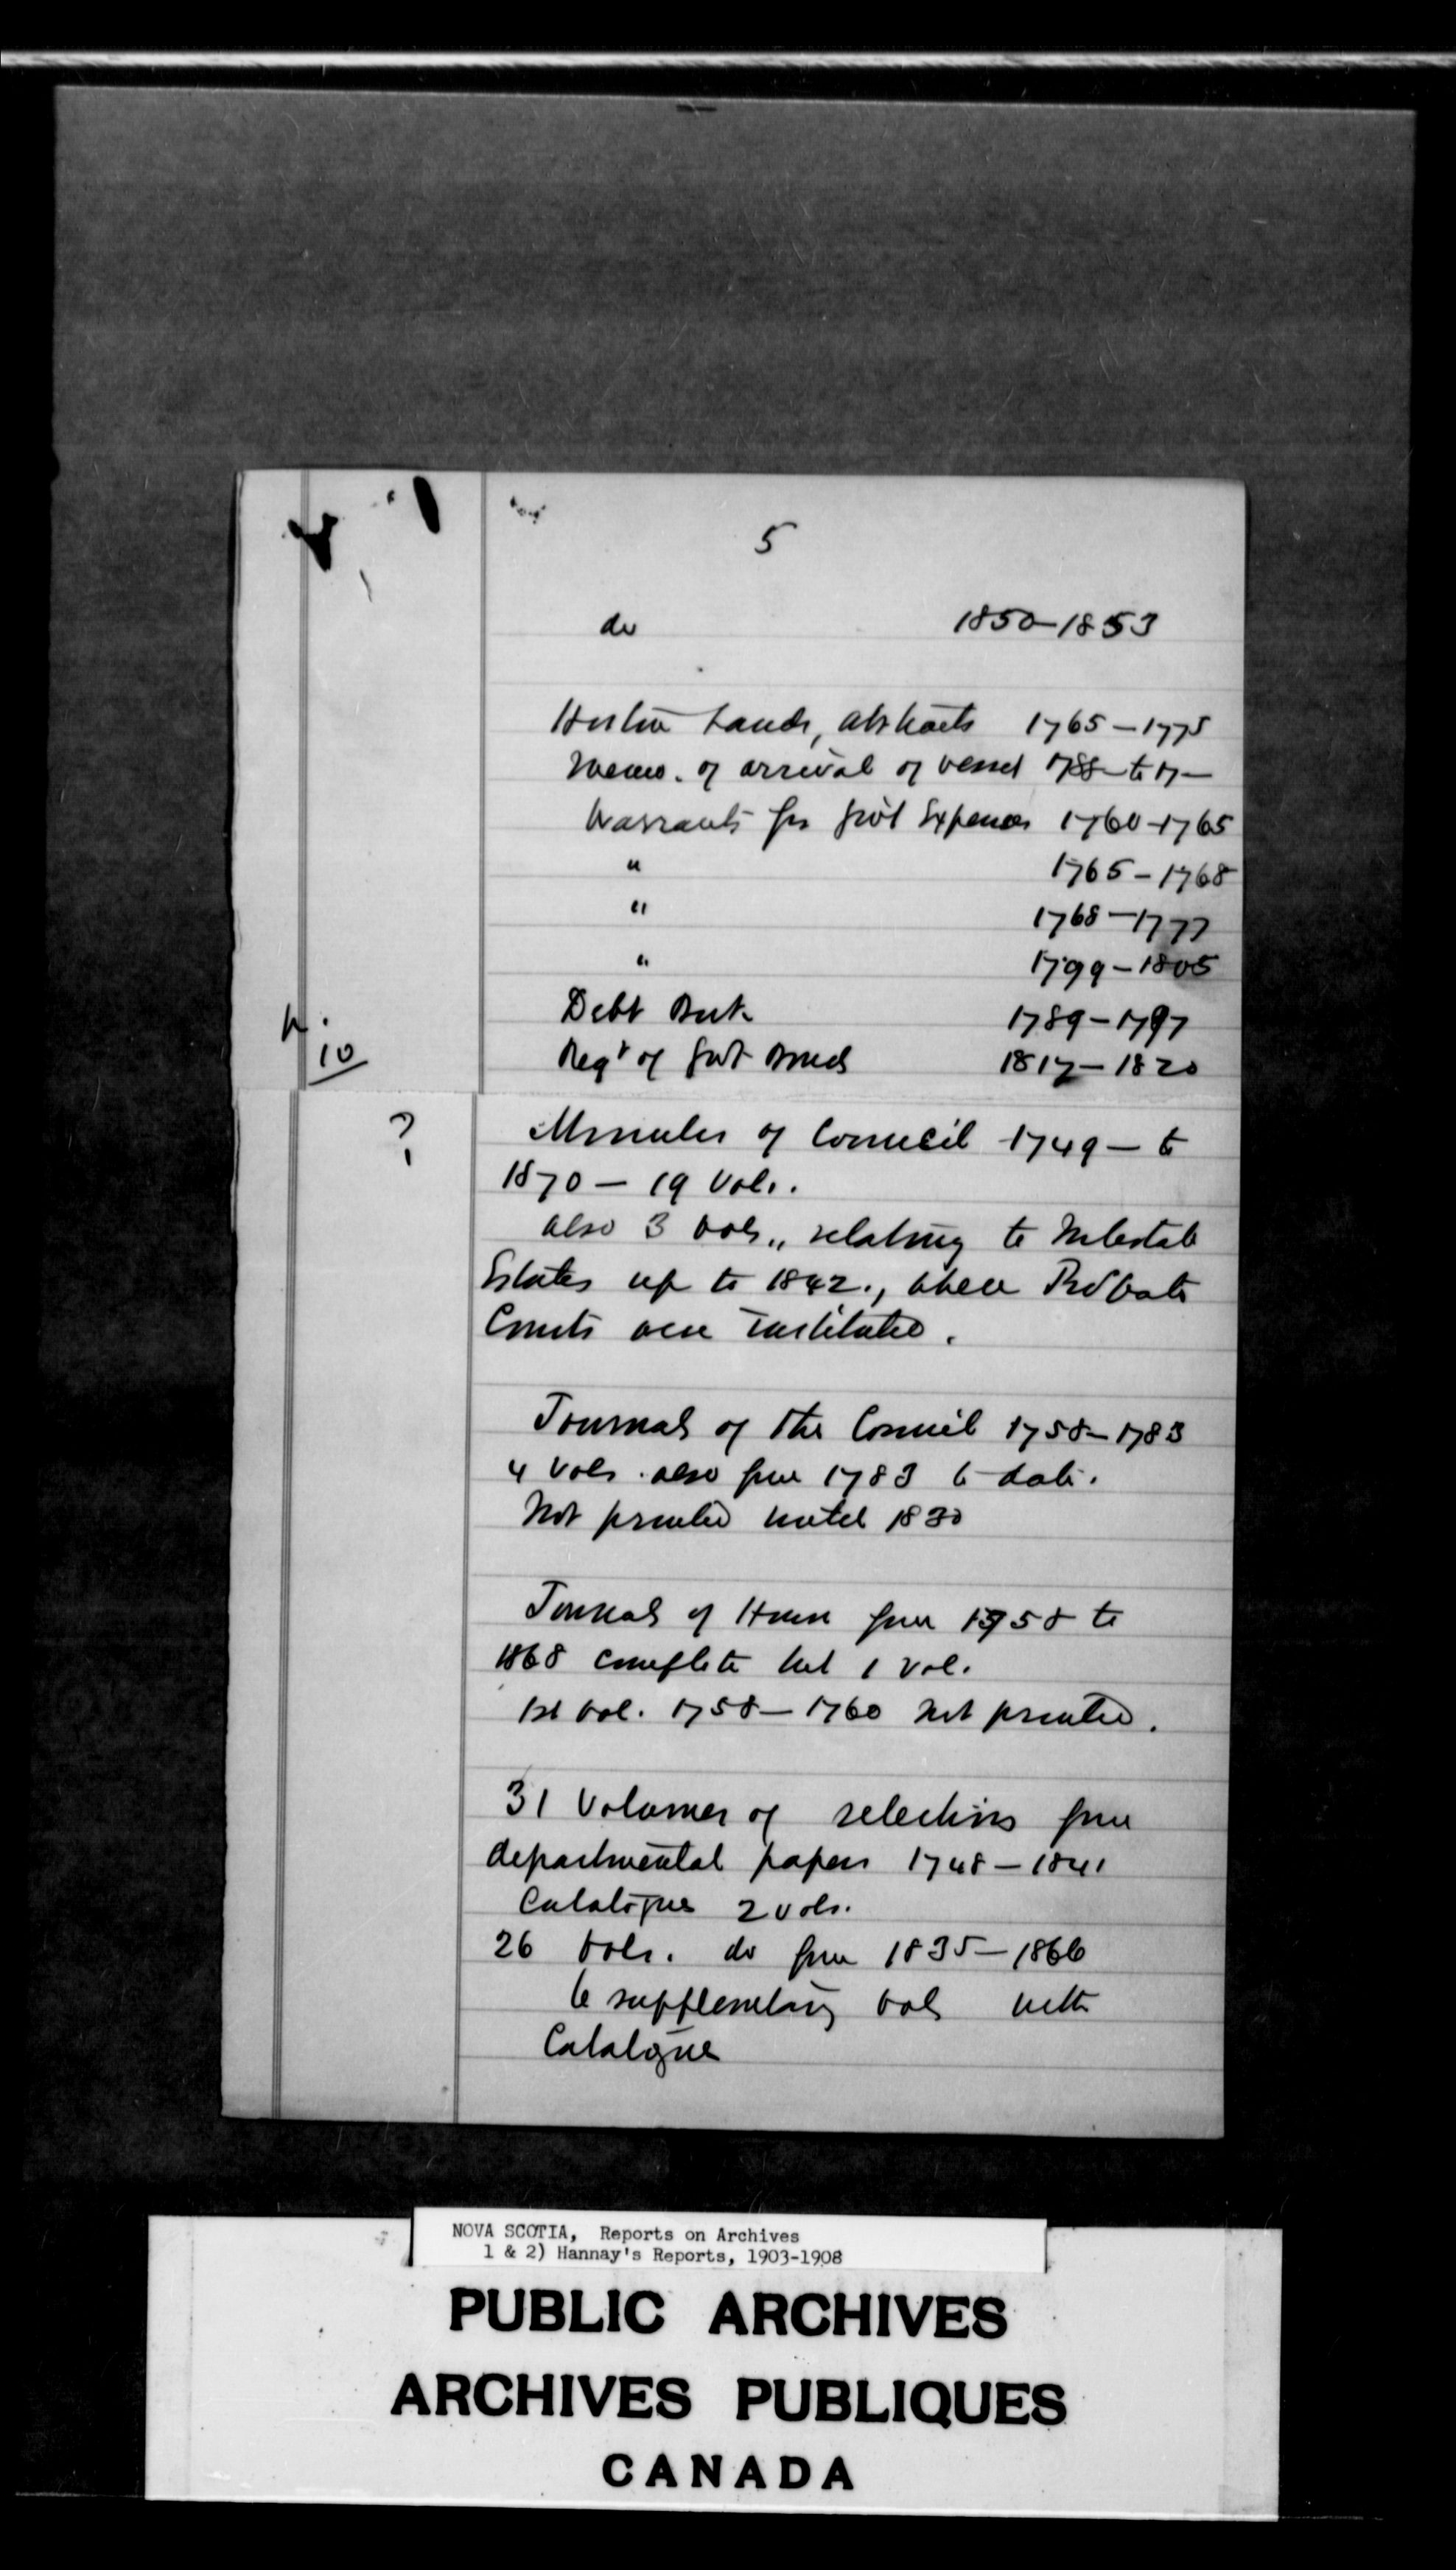 5
do 1850-1853
Horton Lands, Abstracts 1765-1775
Memo. of arrival of vessel
Warrants for Govt Expenses 1760-1765
" 1765-1768
" 1768-1777
" 1799-1805
Debt Book 1789-1797
Regr of Govt Bonds 1817-1820
10
?
Minutes of Council 1749- to
1870- 19 Vols.
also 3 vols., relating to Intestate
Estates up to 1842., when Probate
Courts were instituted.
Journals of the Council 1758-1783
4 Vols. also from 1783 to date.
Not printed until 1830
Journals of House from 1758 to
1868 complete but 1 vol.
1st vol. 1758-1760 not printed.
31 Volumes of selections from
departmental papers 1748-1841
Catalogue 2 vols.
26 vols. do from 1835-1866
6 supplementary vols with
Catalogue
NOVA SCOTIA, Reports on Archives
1 & 2) Hannay's Reports, 1903-1908
PUBLIC ARCHIVES
ARCHIVES PUBLIQUES
CANADA